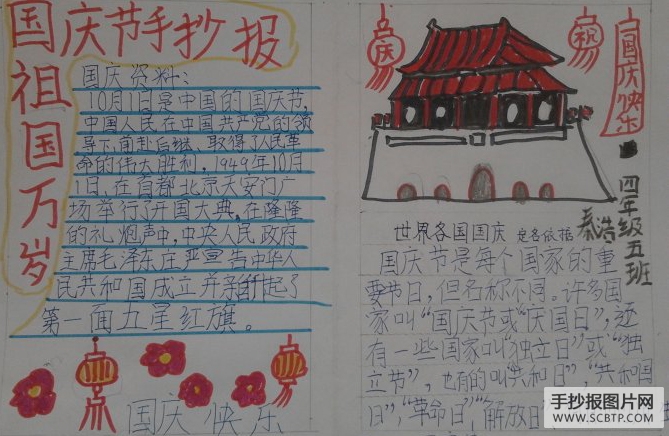 国庆节手抄报
祖国万岁
国庆资料:
10月1日是中国的国庆节,
中国人民在中国共产党的领
导下,前赴后继,取得了人民革
命的伟大胜利。1949年10月
1日,在首都北京天安门广
场举行了开国大典,在隆隆
的礼炮声中,中央人民政府
主席毛泽东庄严宣告中华人
民共和国成立并亲自升起了
第一面五星红旗。
国庆快乐
庆
祝
国庆快乐
四年级五班
秦浩
世界各国国庆 定名依据
国庆节是每个国家的重
要节日,但名称不同。许多国
家叫“国庆节或“庆国日”,还
有一些国家叫“独立日”或“独
立节”,也有的叫“共和日”,“共和国
日”,“革命日”,“解放日
手抄报图片网
WWW.SCBTP.COM